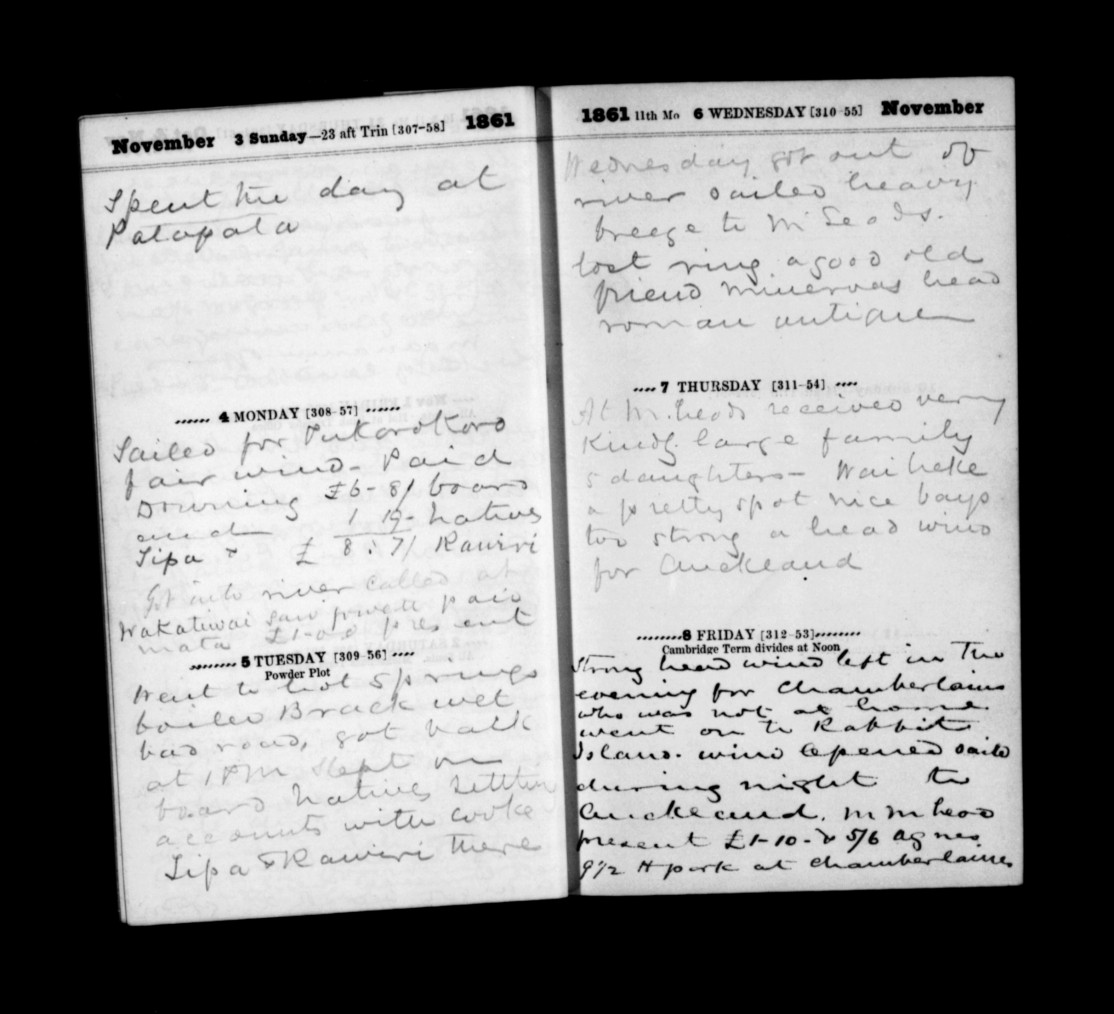 November 3 Sunday—23 aft Trin [307-58] 1861
Spent the day at
Patapata
4 MONDAY [308-57]
Sailed for Pukorokoro
fair wind - Paid
Downing £6-8/ board
and 1 19- natives
Tipa & £ 8:7/ Rawiri
Got into river called at
Wakatiwai saw private paid
mata £1-0-0 present
5 TUESDAY [309-56]
Powder Plot
Went to hot springs
boiled Brack wet
bad road, got back
at 1 PM slept on
board natives settling
accounts with cooke
Tipa & Rawiri there
1861 11th Mo 6 WEDNESDAY [310-55] November
Wednesday got out of
river sailed heavy
breeze to McLeods.
lost ring a good old
friend minervas head
roman antique
7 THURSDAY [311-54]
At M.heads received very
Kindly large family
5 daughters - Waiheke
a pretty spot nice bays
too strong a head wind
for Auckland
8 FRIDAY [312-53]
Cambridge Term divides at Noon
Strong head wind left in the
evening for Chamberlains
who was not at home
went on to Rabbit
Island. wind opened sailed
during night to
Auckland.
present £1-10- & 5/6 Agnes
9½ # pork at Chamberlaines